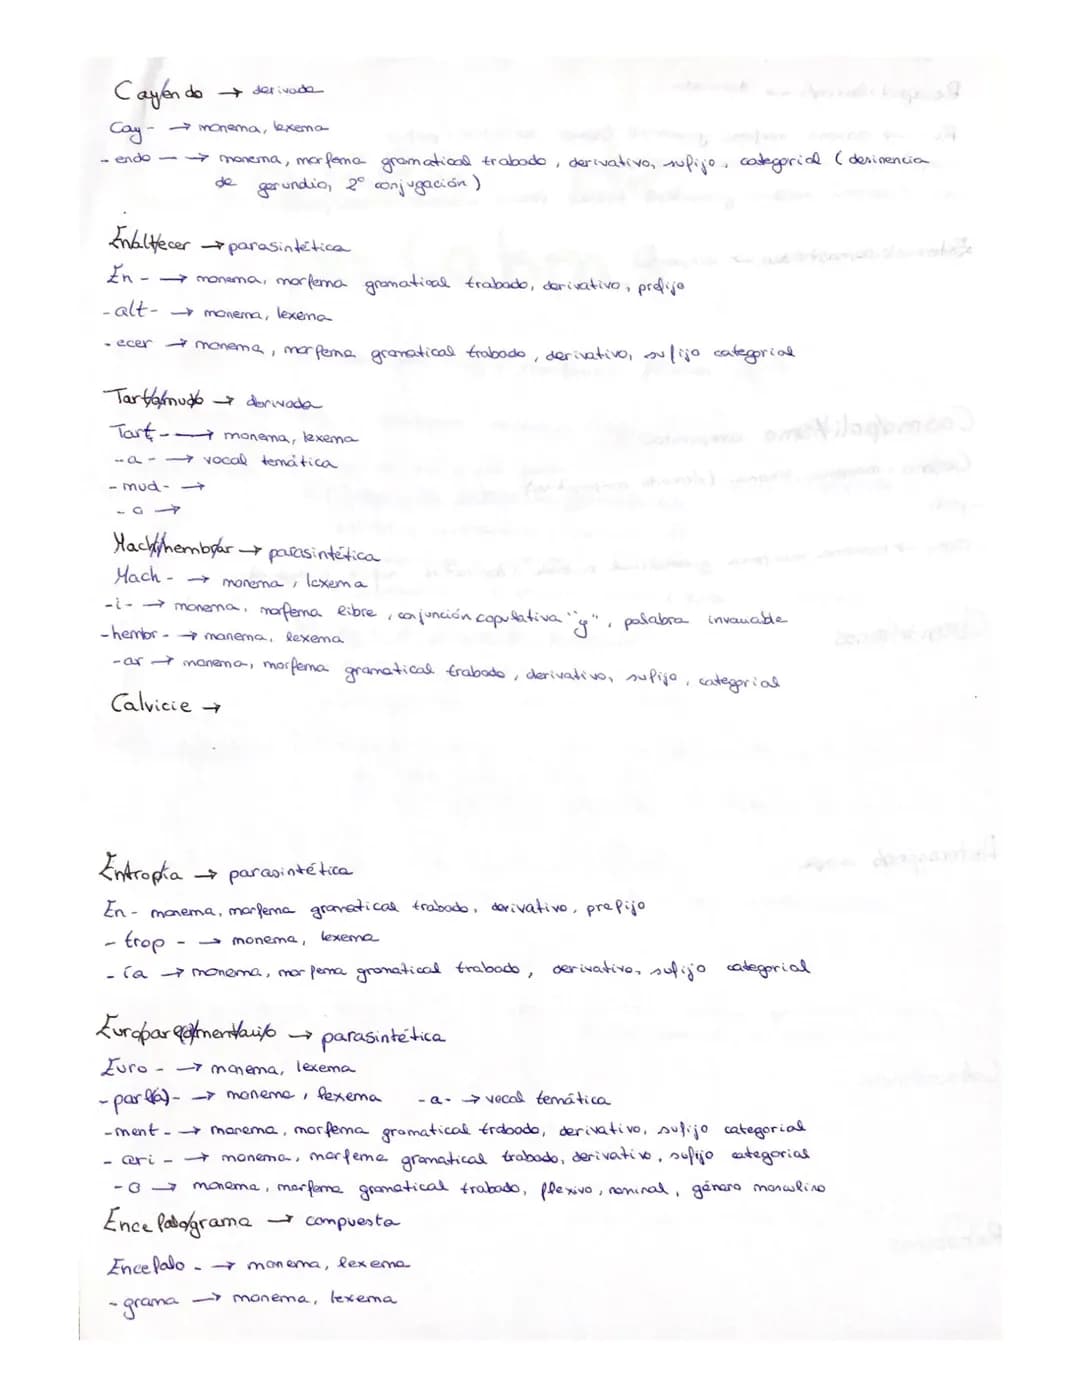 Cayendo → derivada
Cay- → monema, lexema
-endo → monema, morfema gramatical trabado, derivativo, sufijo, categorial (desinencia
de gerundio, 2º conjugación)
Enaltecer → parasintética
En- → monema, morfema gramatical trabado, derivativo, prefijo
-alt- → monema, lexema
-ecer → monema, morfema gramatical trabado, derivativo, sufijo categorial
Tartamudo → derivada
Tart- → monema, lexema
-a- → vocal temática
-mud- →
-o →
Machihembrar → parasintética
Mach- → monema, lexema
-i- → monema, morfema libre, conjunción copulativa "y", palabra invariable
-hembr- → monema, lexema
-ar → monema, morfema gramatical trabado, derivativo, sufijo, categorial
Calvicie →
Entropía → parasintética
En- monema, morfema gramatical trabado, derivativo, prefijo
-trop- → monema, lexema
-ía → monema, morfema gramatical trabado, derivativo, sufijo categorial
Europarlamentario → parasintética
Euro- → monema, lexema
-parl(a)- → monema, lexema -a- → vocal temática
-ment- → monema, morfema gramatical trabado, derivativo, sufijo categorial
-ari- → monema, morfema gramatical trabado, derivativo, sufijo categorial
-o → monema, morfema gramatical trabado, flexivo, nominal, género masculino
Encefalograma → compuesta
Encefalo- → monema, lexema
-grama → monema, lexema